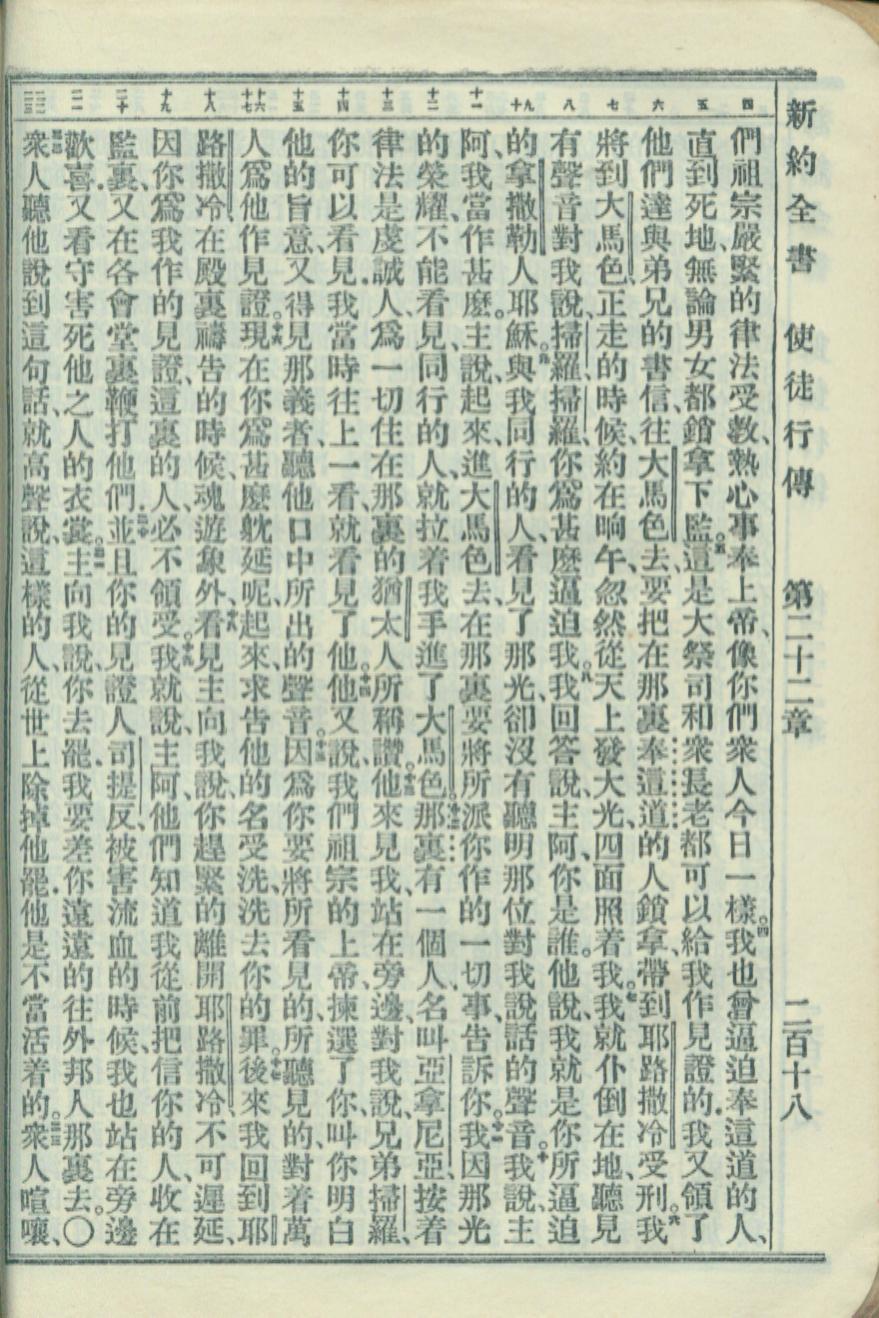 新約全書 使徒行傳 第二十二章 二百十八
四 五 六 七 八 九十 十一 十二 十三 十四 十五 十六十七 十八 十九 二十 二一 二二二三
們祖宗嚴緊的律法受教、熱心事奉上帝、像你們衆人今日一樣。四我也曾逼迫奉這道的人、
直到死地、無論男女都鎖拿下監。五這是大祭司和衆長老都可以給我作見證的、我又領了
他們達與弟兄的書信、往大馬色去、要把在那裏奉這道的人鎖拿、帶到耶路撒冷受刑。六我
將到大馬色、正走的時候、約在晌午、忽然從天上發大光、四面照着我。七我就仆倒在地、聽見
有聲音對我說、掃羅、掃羅、你爲甚麼逼迫我。八我回答說、主阿、你是誰。他說、我就是你所逼迫
的拿撒勒人耶穌。九與我同行的人、看見了那光、卻沒有聽明那位對我說話的聲音。十我說、主
阿、我當作甚麼。主說、起來、進大馬色去、在那裏要將所派你作的一切事告訴你。十一我因那光
的榮耀、不能看見、同行的人、就拉着我手進了大馬色。十二那裏有一個人、名叫亞拿尼亞、按着
律法是虔誠人、爲一切住在那裏的猶太人所稱讚。十三他來見我、站在旁邊、對我說、兄弟掃羅、
你可以看見、我當時往上一看、就看見了他。十四他又說、我們祖宗的上帝、揀選了你、叫你明白
他的旨意、又得見那義者、聽他口中所出的聲音。十五因爲你要將所看見的、所聽見的、對着萬
人爲他作見證。十六現在你爲甚麼躭延呢、起來、求告他的名受洗、洗去你的罪。十七後來我回到耶
路撒冷、在殿裏禱告的時候、魂遊象外、十八看見主向我說、你趕緊的離開耶路撒冷、不可遲延、
因你爲我作的見證、這裏的人、必不領受。十九我就說、主阿、他們知道我從前把信你的人、收在
監裏、又在各會堂裏鞭打他們、二十並且你的見證人司提反、被害流血的時候、我也站在旁邊
歡喜、又看守害死他之人的衣裳。二一主向我說、你去罷、我要差你遠遠的往外邦人那裏去。〇
二二衆人聽他說到這句話、就高聲說、這樣的人、從世上除掉他罷、他是不當活着的。二三衆人喧嚷、